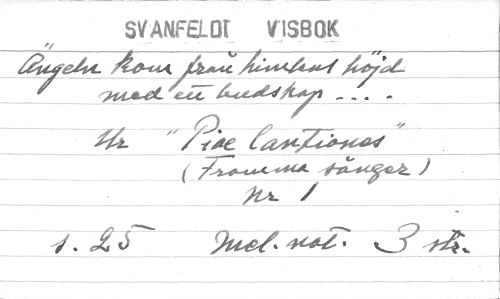 SVANFELDT VISBOK
Ängeln kom från himlens höjd
med ett budskap ....
Ur "Piae Cantiones"
(Fromma sånger)
Nr 1
s. 25 Mel. not. 3 str.